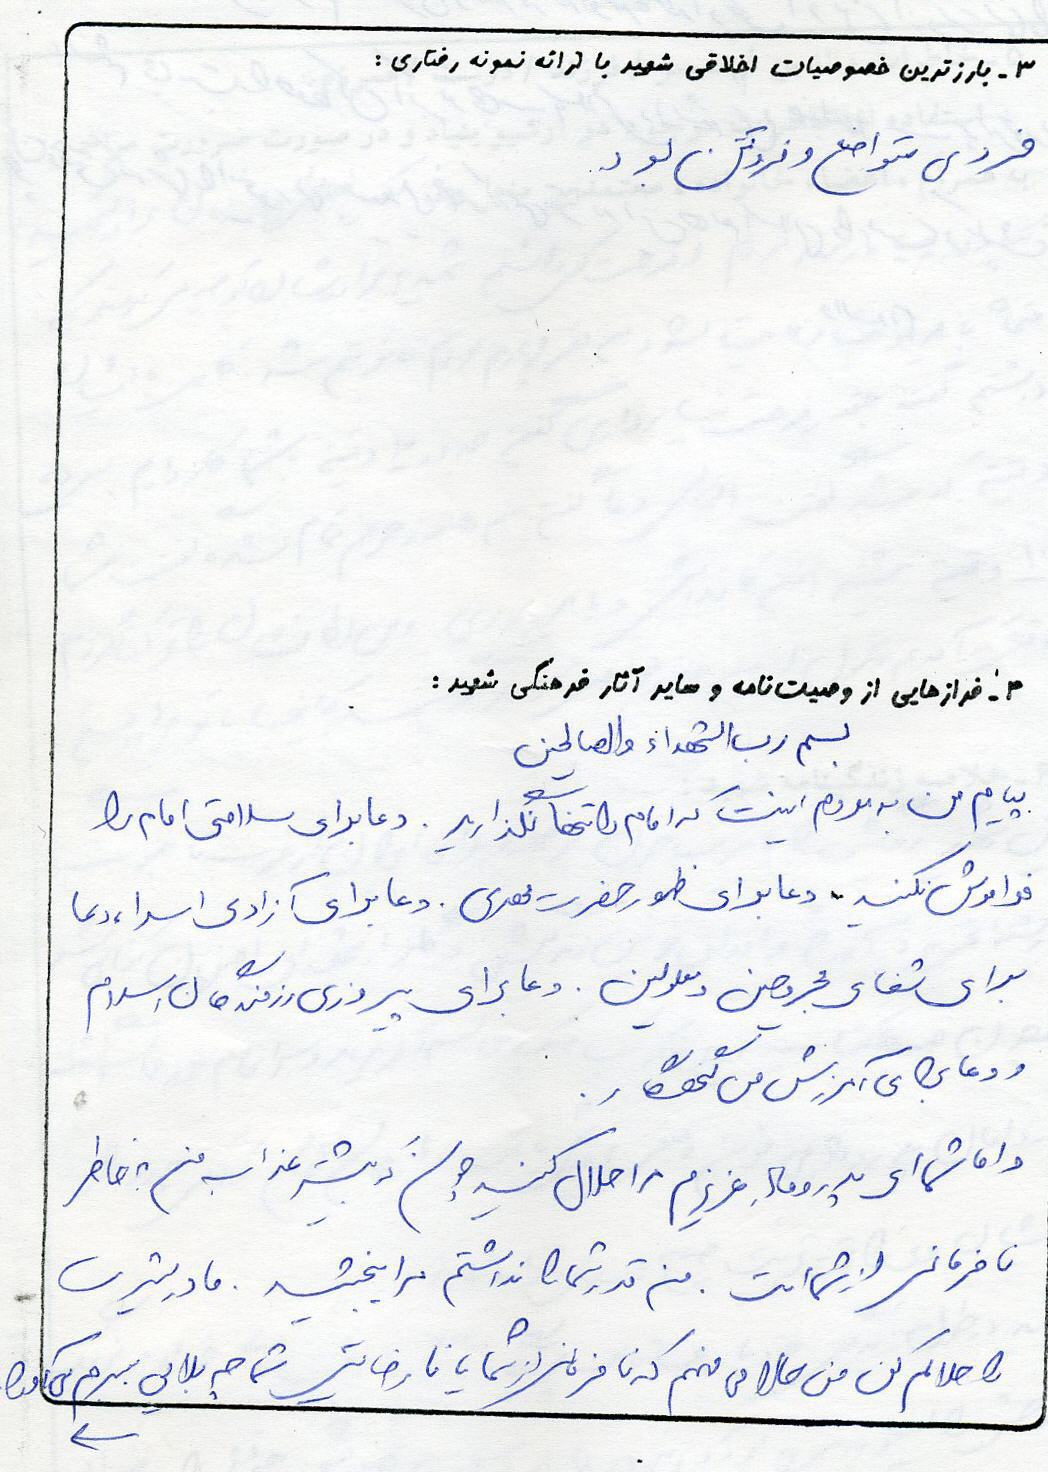 ۳- بارزترین خصوصیات اخلاقی شهید با ارائه نمونه رفتاری :
فردی متواضع و فروتن بود.
۴- فرازهایی از وصیت‌نامه و سایر آثار فرهنگی شهید :
بسم رب الشهداء والصالحین
پیام من به مردم اینست که امام را تنها نگذارید. دعا برای سلامتی امام را
فراموش نکنید. دعا برای ظهور حضرت مهدی. دعا برای آزادی اسراء، دعا
برای شفای مجروحین و معلولین. دعا برای پیروزی رزمندگان اسلام
و دعا برای آمرزش من گنهکار.
و اما شما ای پدر و مادر عزیزم مرا حلال کنید چون که بیشتر عذاب من به خاطر
نافرمانی از شماست. من قدر شما را نداشتم مرا ببخشید. مادر شیرت
را حلالم کن من حالا می فهمم که نافرمانی از شما یا نارضایتی شما چه بلایی بسرم می‌آورد